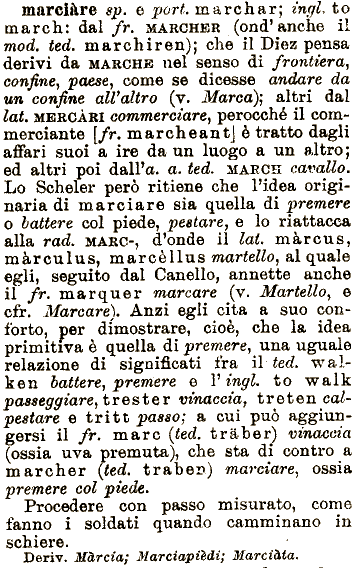 marciàre sp. e port. marchar; ingl. to
march: dal fr. MARCHER (ond' anche il
mod. ted. marchiren); che il Diez pensa
derivi da MARCHE nel senso di frontiera,
confine, paese, come se dicesse andare da
un confine all'altro (v. Marca); altri dal
lat. MERCÀRI commerciare, perocché il com-
merciante [fr. marcheant] è tratto dagli
affari suoi a ire da un luogo a un altro;
ed altri poi dall'a. a. ted. MARCH cavallo.
Lo Scheler però ritiene che l'idea origi-
naria di marciare sia quella di premere
o battere col piede, pestare, e lo riattacca
alla rad. MARC-, d'onde il lat. màrcus,
màrculus, marcèllus martello, al quale
egli, seguito dal Canello, annette anche
il fr. marquer marcare (v. Martello, e
cfr. Marcare). Anzi egli cita a suo con-
forto, per dimostrare, cioè, che la idea
primitiva è quella di premere, una uguale
relazione di significati fra il ted. wal-
ken battere, premere e l' ingl. to walk
passeggiare, trester vinaccia, treten cal-
pestare e tritt passo; a cui può aggiun-
gersi il fr. marc (ted. träber) vinaccia
(ossia uva premuta), che sta di contro a
marcher (ted. traben) marciare, ossia
premere col piede.
Procedere con passo misurato, come
fanno i soldati quando camminano in
schiere.
Deriv. Màrcia; Marciapièdi; Marciàta.